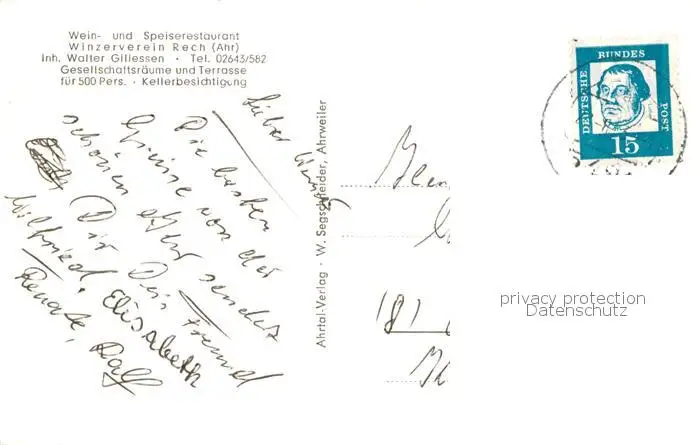 Wein- und Speiserestaurant
Winzerverein Rech (Ahr)
Inh. Walter Gillessen · Tel. 02643/582
Gesellschaftsräume und Terrasse
für 500 Pers. · Kellerbesichtigung
Lieber
Die besten
Grüsse von der
schönen Ahr sendet
Dir Dein Freund
Wilfried, Elisabeth
Renate, Ralf
Ahrtal-Verlag · W. Segschneider, Ahrweiler
DEUTSCHE BUNDES POST
15
privacy protection
Datenschutz